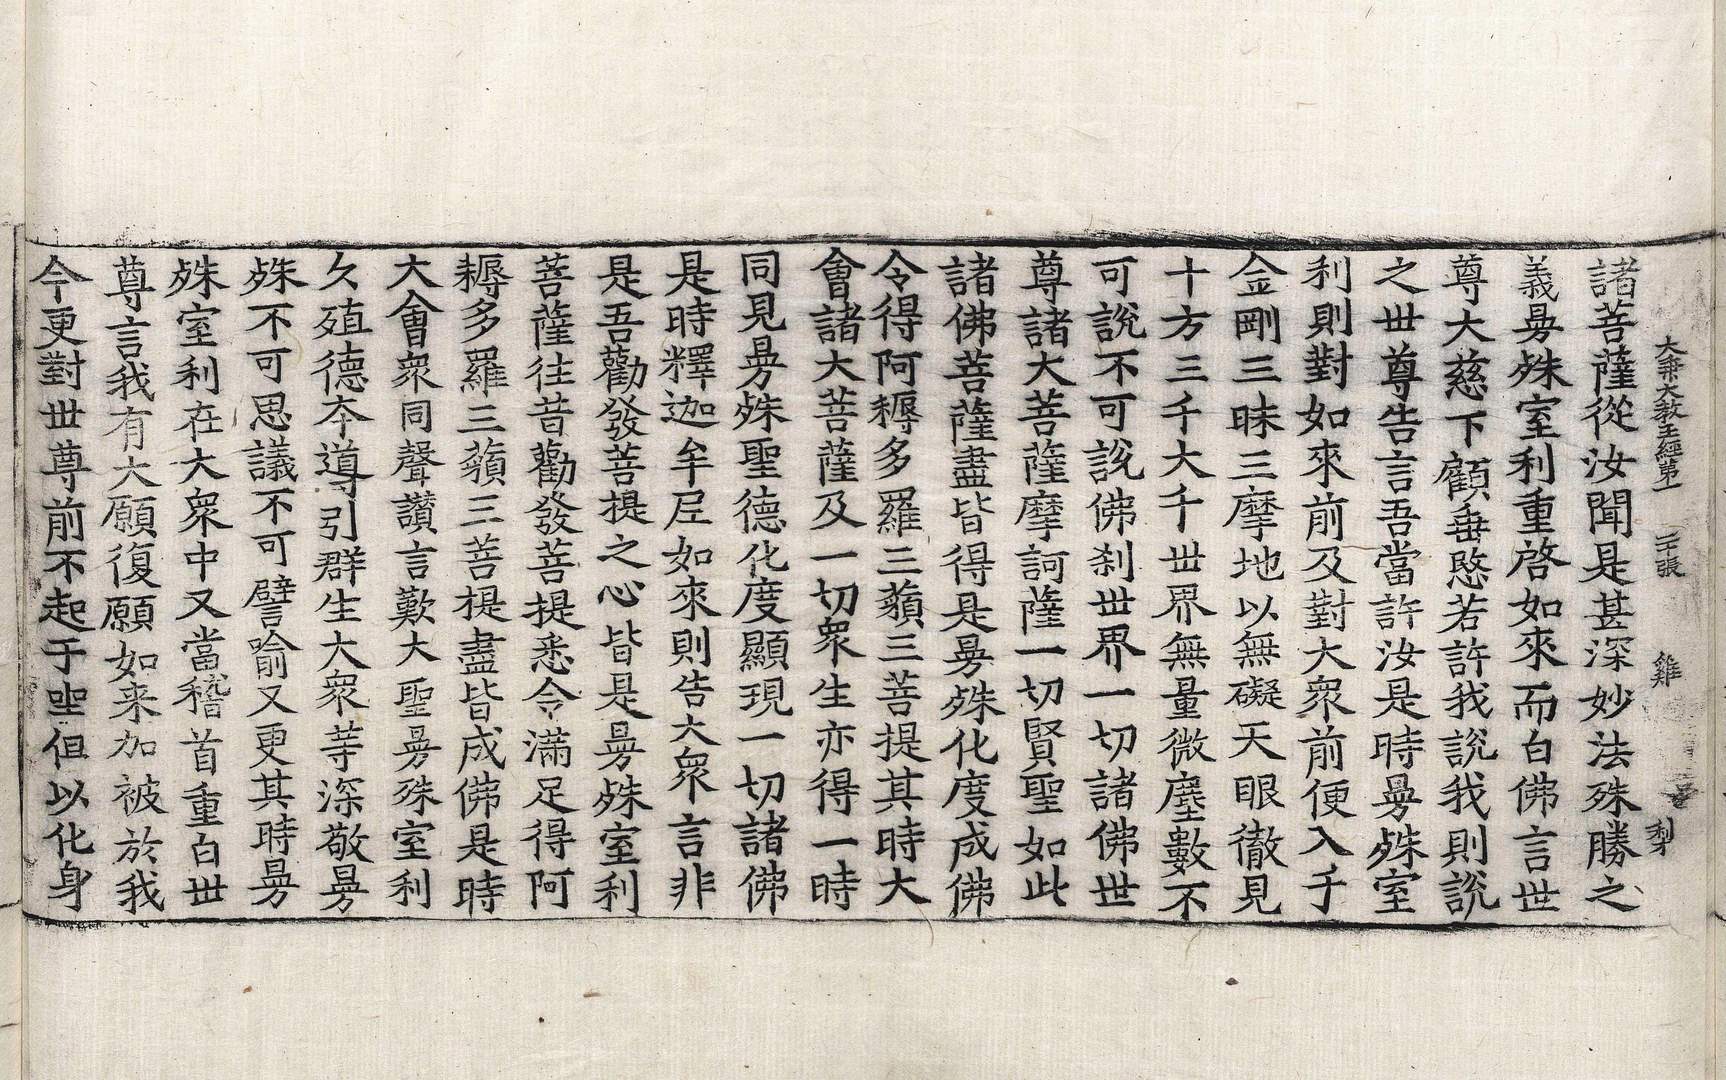 大乘大教王經第一　二十張　雞
梨
諸菩薩從汝聞是甚深妙法殊勝之
義曼殊室利重啓如來而白佛言世
尊大慈下顧垂愍若許我說我則說
之世尊告言吾當許汝是時曼殊室
利則對如來前及對大衆前便入于
金剛三昧三摩地以無礙天眼徹見
十方三千大千世界無量微塵數不
可說不可說佛剎世界一切諸佛世
尊諸大菩薩摩訶薩一切賢聖如此
諸佛菩薩盡皆得是曼殊化度成佛
令得阿耨多羅三藐三菩提其時大
會諸大菩薩及一切衆生亦得一時
同見曼殊聖德化度顯現一切諸佛
是時釋迦牟尼如來則告大衆言非
是吾勸發菩提之心皆是曼殊室利
菩薩往昔勸發菩提悉令滿足得阿
耨多羅三藐三菩提盡皆成佛是時
大會衆同聲讚言歎大聖曼殊室利
久殖德本導引群生大衆等深敬曼
殊不可思議不可譬喻又更其時曼
殊室利在大衆中又當稽首重白世
尊言我有大願復願如来加被於我
今更對世尊前不起于坐但以化身